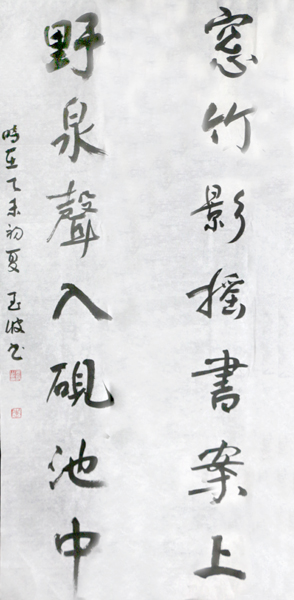 窓竹影摇書案上
野泉聲入硯池中
時在乙未初夏 玉波书